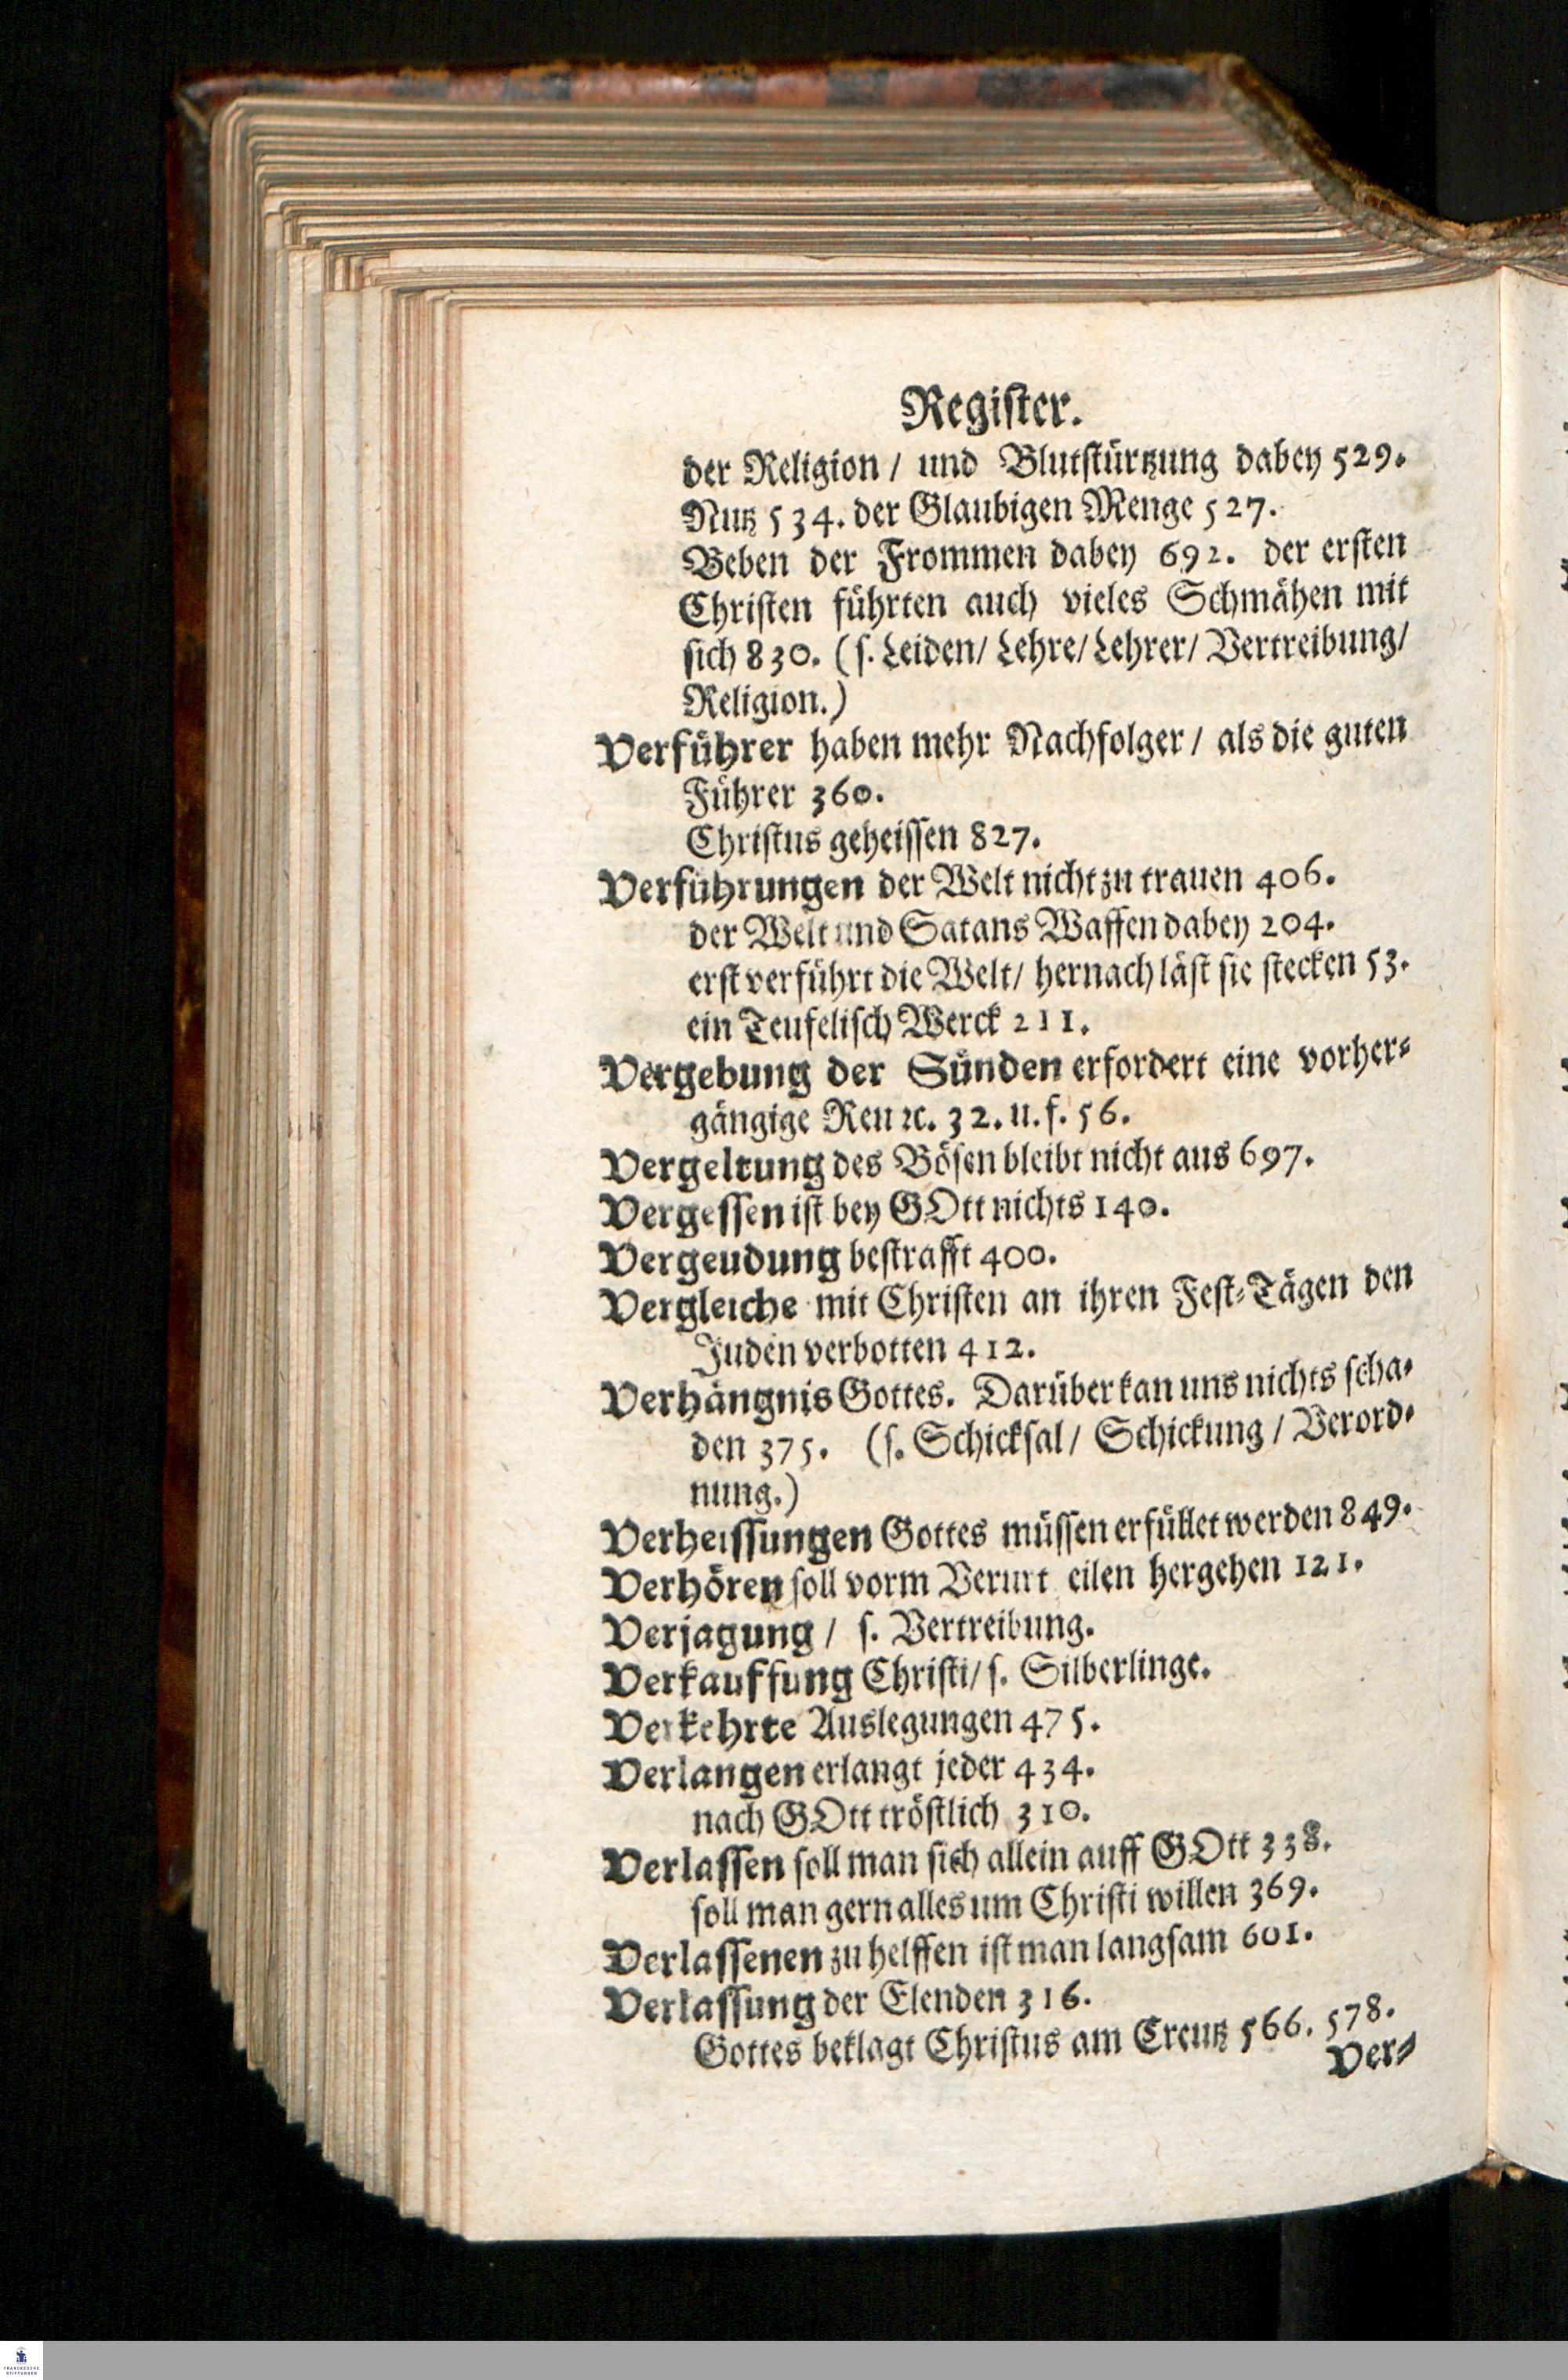 Register.
der Religion / und Blutstürtzung dabey 529.
Nutz 534. der Glaubigen Menge 527.
Beben der Frommen dabey 692. der ersten
Christen führten auch vieles Schmähen mit
sich 830. (s. Leiden/ Lehre/ Lehrer/ Vertreibung/
Religion.)
Verführer haben mehr Nachfolger / als die guten
Führer 360.
Christus geheissen 827.
Verführungen der Welt nicht zu trauen 406.
der Welt und Satans Waffen dabey 204.
erst verführt die Welt/ hernach läst sie stecken 53.
ein Teufelisch Werck 211.
Vergebung der Sünden erfordert eine vorher-
gängige Reu ꝛc. 32. u. f. 56.
Vergeltung des Bösen bleibt nicht aus 697.
Vergessen ist bey GOtt nichts 140.
Vergeudung bestrafft 400.
Vergleiche mit Christen an ihren Fest-Tägen den
Juden verbotten 412.
Verhängnis Gottes. Darüber kan uns nichts scha-
den 375. (s. Schicksal / Schickung / Verord-
nung.)
Verheissungen Gottes müssen erfüllet werden 849.
Verhören soll vorm Verurt eilen hergehen 121.
Verjagung / s. Vertreibung.
Verkauffung Christi/ s. Silberlinge.
Verkehrte Auslegungen 475.
Verlangen erlangt jeder 434.
nach GOtt tröstlich 310.
Verlassen soll man sich allein auff GOtt 338.
soll man gern alles um Christi willen 369.
Verlassenen zu helffen ist man langsam 601.
Verlassung der Elenden 316.
Gottes beklagt Christus am Creutz 566. 578.
Ver-
FRANCKESCHE
STIFTUNGEN